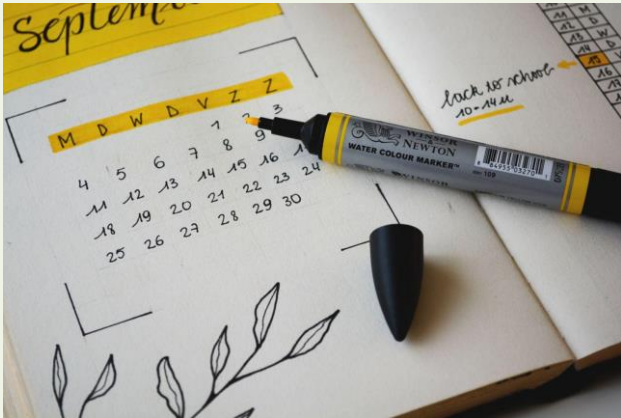 September
M D W D V Z Z
1 2 3
4 5 6 7 8 9
11 12 13 14 15 16
18 19 20 21 22 23 24
25 26 27 28 29 30
WINSOR
& NEWTON
WATER COLOUR MARKER™
back to school
10-14u
11 M
12 D
13 W
14 D
15
16
17